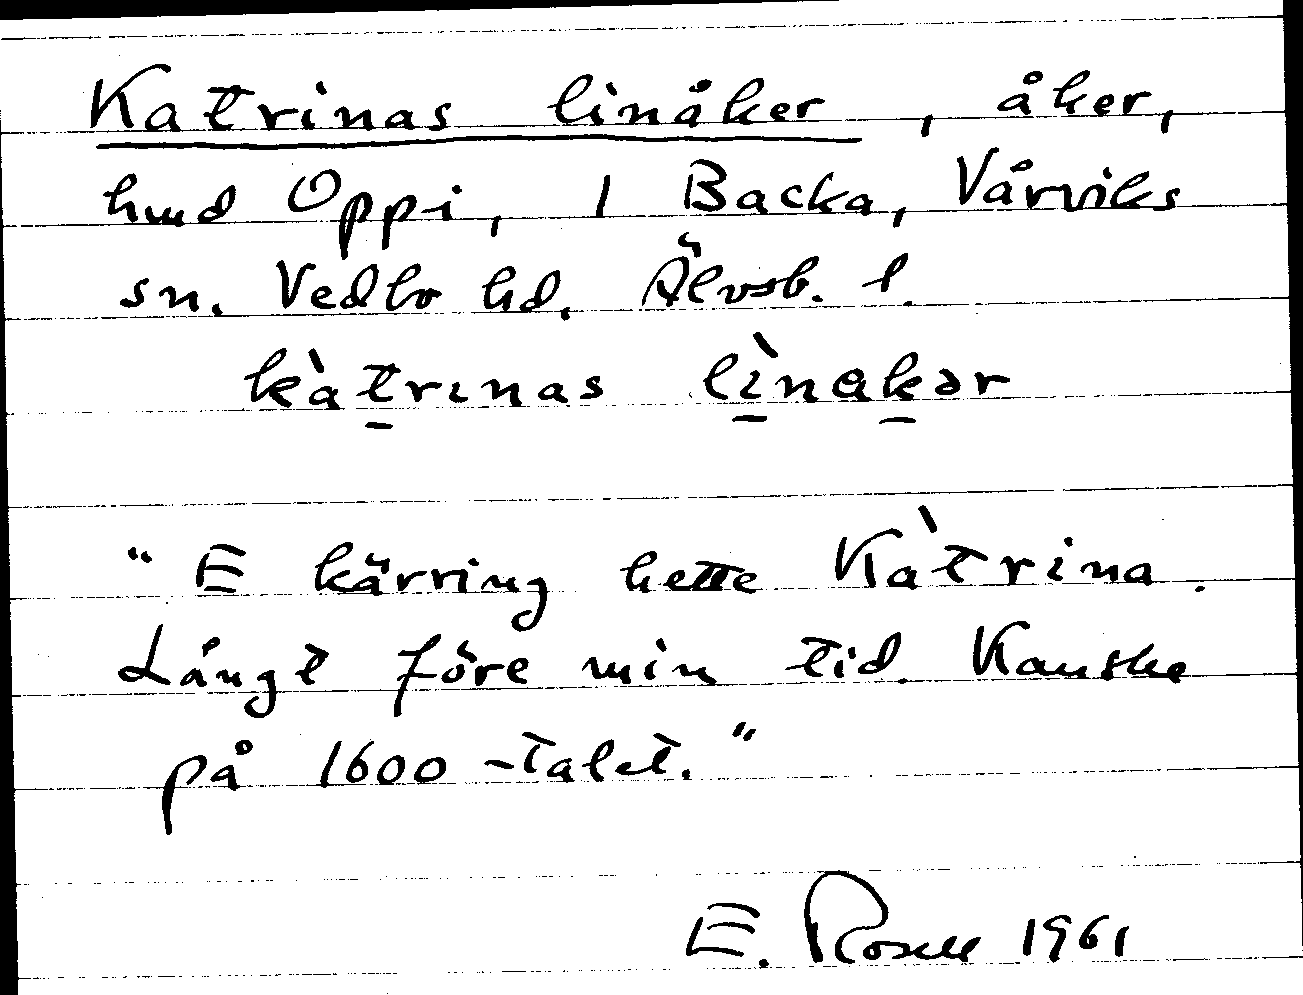 Katrinas linåker, åker,
hmd Oppi, 1 Backa, Vårviks
sn. Vedbo hd. Älvsb. l.
kàt̲rɪnas lì̲nɑk̲ər
"E kärring hette Kàtrina.
Långt före min tid. Kanske
på 1600-talet."
E. Rosell 1961